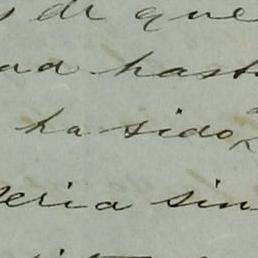 de que
ad hasta
ha sido
eria sin